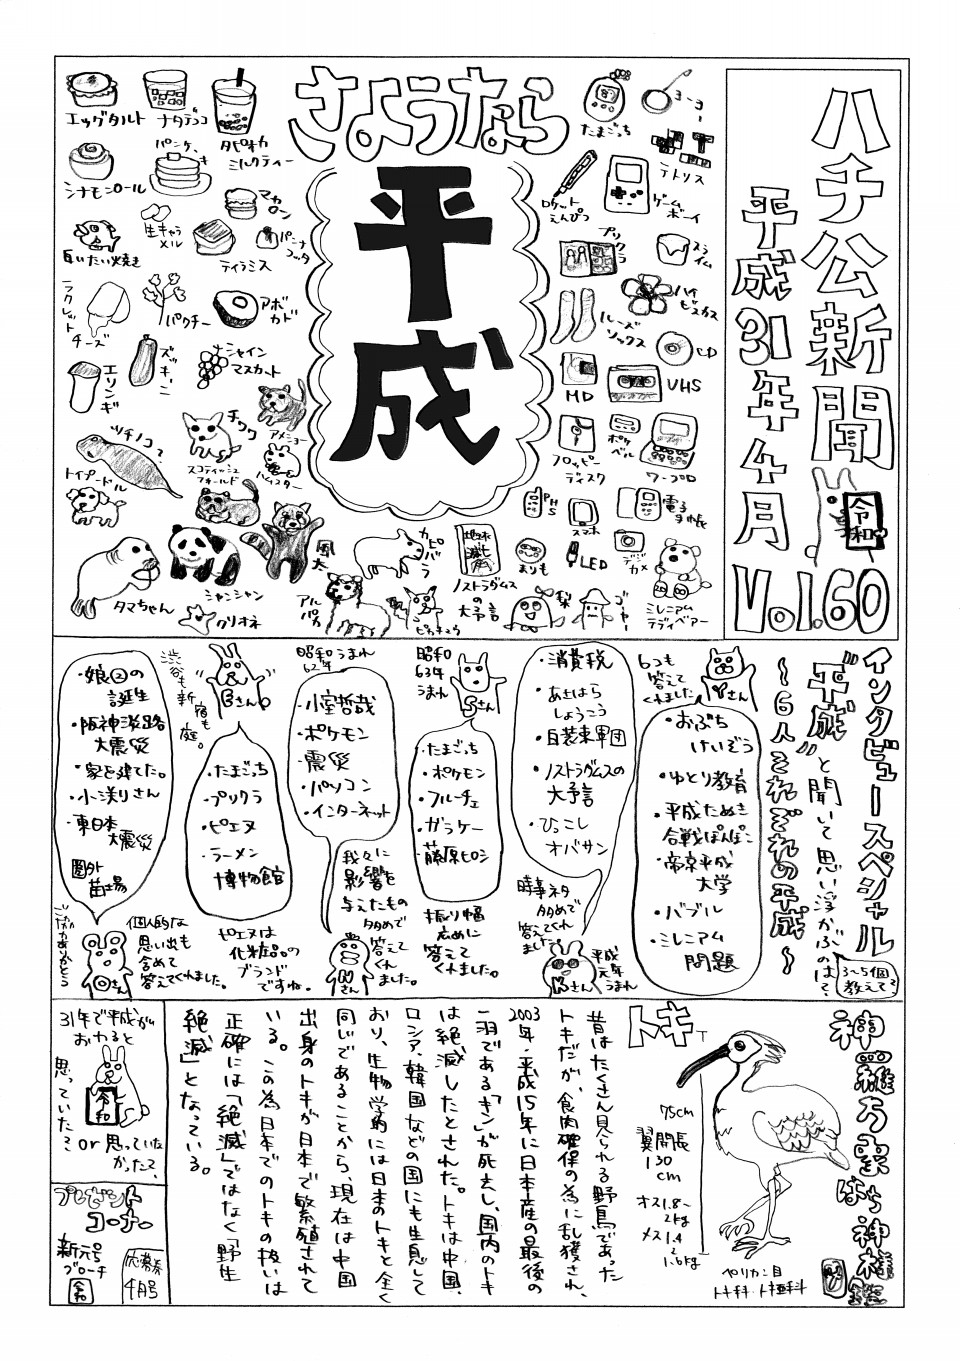 ハチ公新聞
平成31年4月
Vol.60
令和
さようなら
平成
エッグタルト
ナタデココ
タピオカ
ミルクティー
シナモンロール
パンケーキ
マカロン
生キャラメル
ティラミス
パンナコッタ
ラクレット
チーズ
パクチー
アボカド
エリンギ
ズッキーニ
シャイン
マスカット
チワワ
アメショー
ツチノコ?
スコティッシュ
フォールド
ハムスター
トイプードル
タマちゃん
シャンシャン
クリオネ
風太
カピバラ
アルパカ
ピカチュウ
たまごっち
ヨーヨー
テトリス
ロケット
えんぴつ
ゲーム
ボーイ
プリクラ
スライム
ルーズ
ソックス
ハイビスカス
CD
MD
VHS
フロッピー
ディスク
ポケベル
ワープロ
PHS
スマホ
電子手帳
ノストラダムス
の大予言
まりも
LED
デジカメ
梨
ゴーヤー
ミレニアム
テディベアー
インタビュースペシャル
“平成”と聞いて思い浮かぶのは?
〜6人それぞれの平成〜
3〜5個
教えて?
Yさん
6つも
答えて
くれました
・おぶち
けいぞう
・ゆとり教育
・平成たぬき
合戦ぽんぽこ
・帝京平成
大学
・バブル
・ミレニアム
問題
・消費税
・あさはら
しょうこう
・自装束軍団
・ノストラダムスの
大予言
・ひっこし
オバサン
時事ネタ
多めで
答えてくれ
ました
Kさん
平成
元年
うまれ
昭和
63年
うまれ
Sさん
・たまごっち
・ポケモン
・フルーチェ
・ガラケー
・藤原ヒロシ
振り幅
広めに
答えて
くれました。
昭和うまれ
62年
・小室哲哉
・ポケモン
・震災
・パソコン
・インターネット
我々に
影響を
与えたもの
多めで
答えて
くれ
ました。
Hさん
渋谷も新宿も庭。
Bさん
・たまごっち
・プリクラ
・ピエヌ
・ラーメン
博物館
ピエヌは
化粧品の
ブランド
ですね。
・娘②の
誕生
・阪神淡路
大震災
・家を建てた。
・小渕りさん
・東日本
大震災
圏外
苗場
個人的な
思い出も
含めて
答えてくれました。
Oさん
神羅万象はち神様鑑
トキ
75cm
翼開長
130
cm
オス1.8〜
2kg
メス1.4
〜
1.6kg
ペリカン目
トキ科・トキ亜科
昔はたくさん見られる野鳥であった
トキだが、食肉確保の為に乱獲され、
2003年・平成15年に日本産の最後の
一羽である「キン」が死去し、国内のトキ
は絶滅したとされた。トキは中国、
ロシア、韓国などの国にも生息して
おり、生物学的には日本のトキと全く
同じであることから、現在は中国
出身のトキが日本で繁殖されて
いる。この為日本でのトキの扱いは
正確には「絶滅」ではなく「野生
絶滅」となっている。
31年で平成が
おわると
思っていた?
or 思っていな
かった?
令和
プレゼント
コーナー
新元号
ブローチ
令和
応募券
4月号